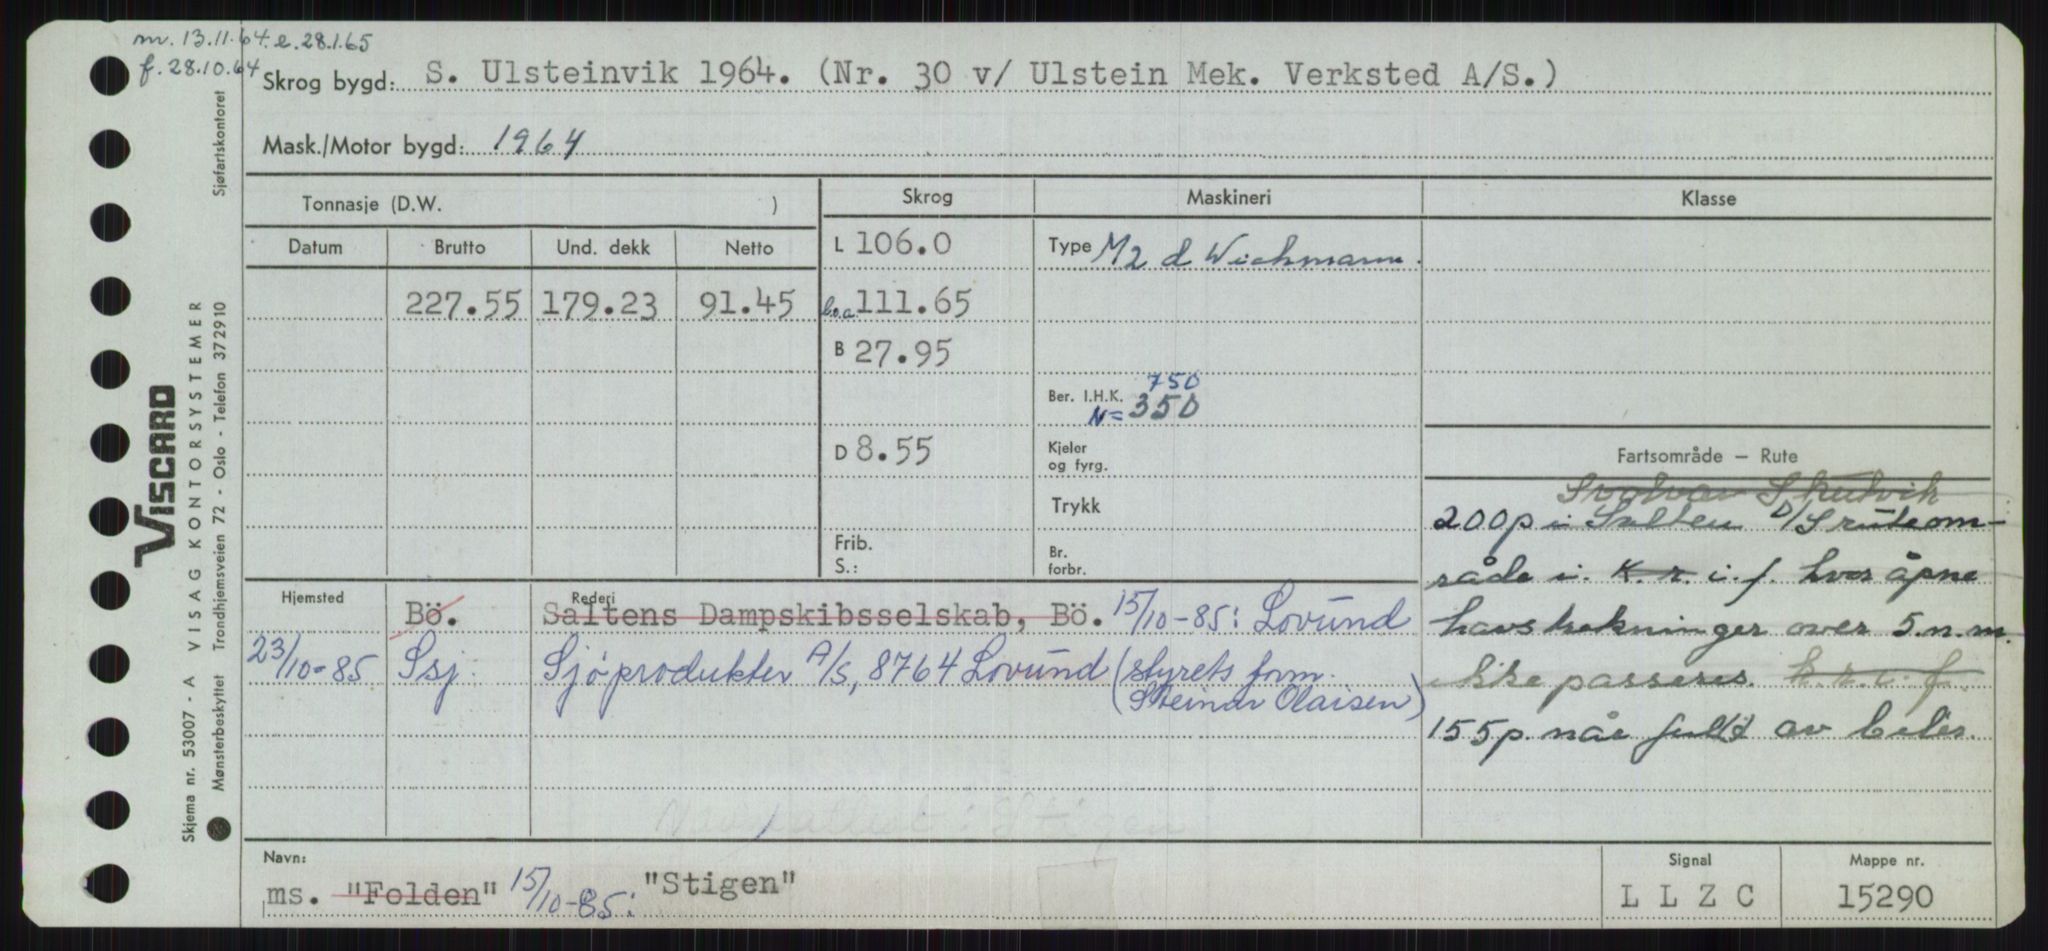 m. 13.11.64. e. 28.1.65
f. 28.10.64
Skrog bygd: S. Ulsteinvik 1964. (Nr. 30 v/ Ulstein Mek. Verksted A/S.)
Mask./Motor bygd: 1964
Tonnasje (D.W. ) Skrog Maskineri Klasse
Datum Brutto Und. dekk Netto L 106.0 Type M2 d Wichmann.
227.55 179.23 91.45 l.o.a. 111.65
B 27.95
750
Ber. I.H.K. N= 350
D 8.55 Kjeler og fyrg.
Trykk
Frib. S.: Br. forbr.
Fartsområde — Rute
Svolvær Skutvik
200 p i Salten D/S ruteom-
råde i. k.r. i. f. hvor åpne
havstrekninger over 5.n.m.
ikke passeres. k.r.i.f.
155 p. når fullt av biler.
Hjemsted Rederi
Bö. Saltens Dampskibsselskab, Bö. 15/10-85: Lovund
23/10-85 Ssj. Sjöprodukter A/S, 8764 Lovund (styrets form.
Steinar Olaisen)
Stigen
Navn: Signal Mappe nr.
ms. "Folden" 15/10-85: "Stigen" L L Z C 15290
VISCARD
Skjema nr. 53007 - A VISAG KONTORSYSTEMER
Mønsterbeskyttet Trondhjemsveien 72 - Oslo - Telefon 372910 Sjøfartskontoret